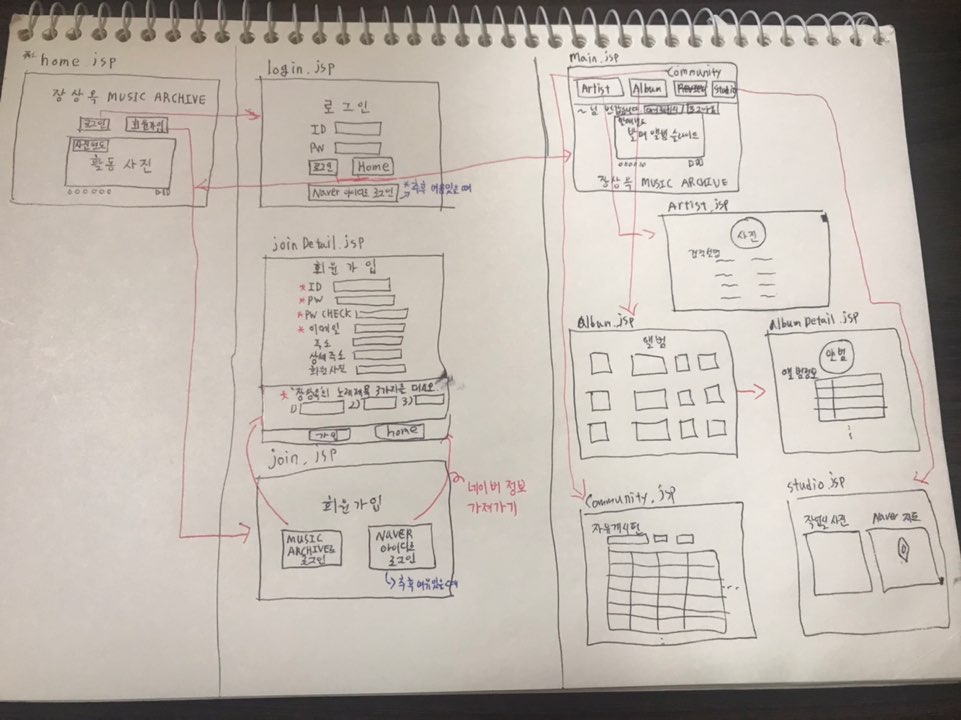 home.jsp
장상옥 MUSIC ARCHIVE
로그인 회원가입
활동 사진
login.jsp
로그인
ID
PW
로그인 Home
Naver 아이디로 로그인
* 추후 여유있을 때
joinDetail.jsp
회원가입
* ID
* PW
* PW CHECK
* 이메일
주소
상세주소
회원사진
* 장상옥의 노래제목 3가지를 대시오.
1) 2) 3)
가입 home
join.jsp
회원가입
MUSIC
ARCHIVE로
로그인
NAVER
아이디로
로그인
추후 여유있을 때
네이버 정보
가져가기
Main.jsp
Community
Artist Album Studio
~님 반갑습니다 로그아웃
발매 앨범 슬라이드
장상옥 MUSIC ARCHIVE
Artist.jsp
사진
Album.jsp
앨범
AlbumDetail.jsp
앨범
앨범정보
Community.jsp
자유게시판
studio.jsp
작업실 사진 Naver 지도